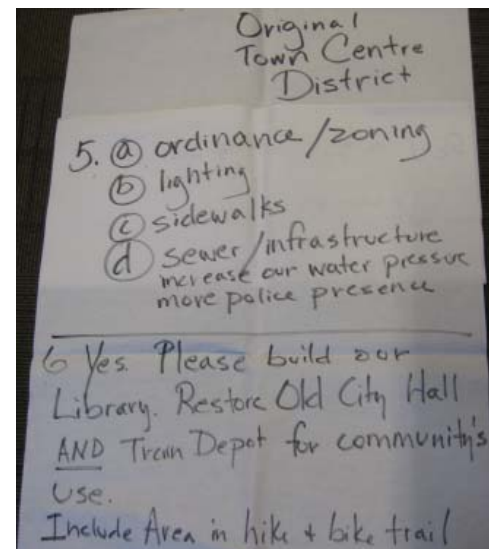 Original
Town Centre
District
5. ⓐ ordinance/zoning
ⓑ lighting
ⓒ sidewalks
ⓓ sewer/infrastructure
increase our water pressure
more police presence
6 Yes. Please build our
Library. Restore Old City Hall
AND Train Depot for community's
use.
Include Area in hike + bike trail